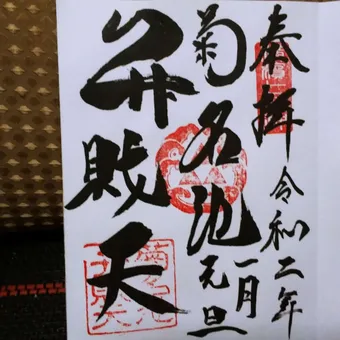 奉拝
令和二年
菊名池
一月元旦
弁財天